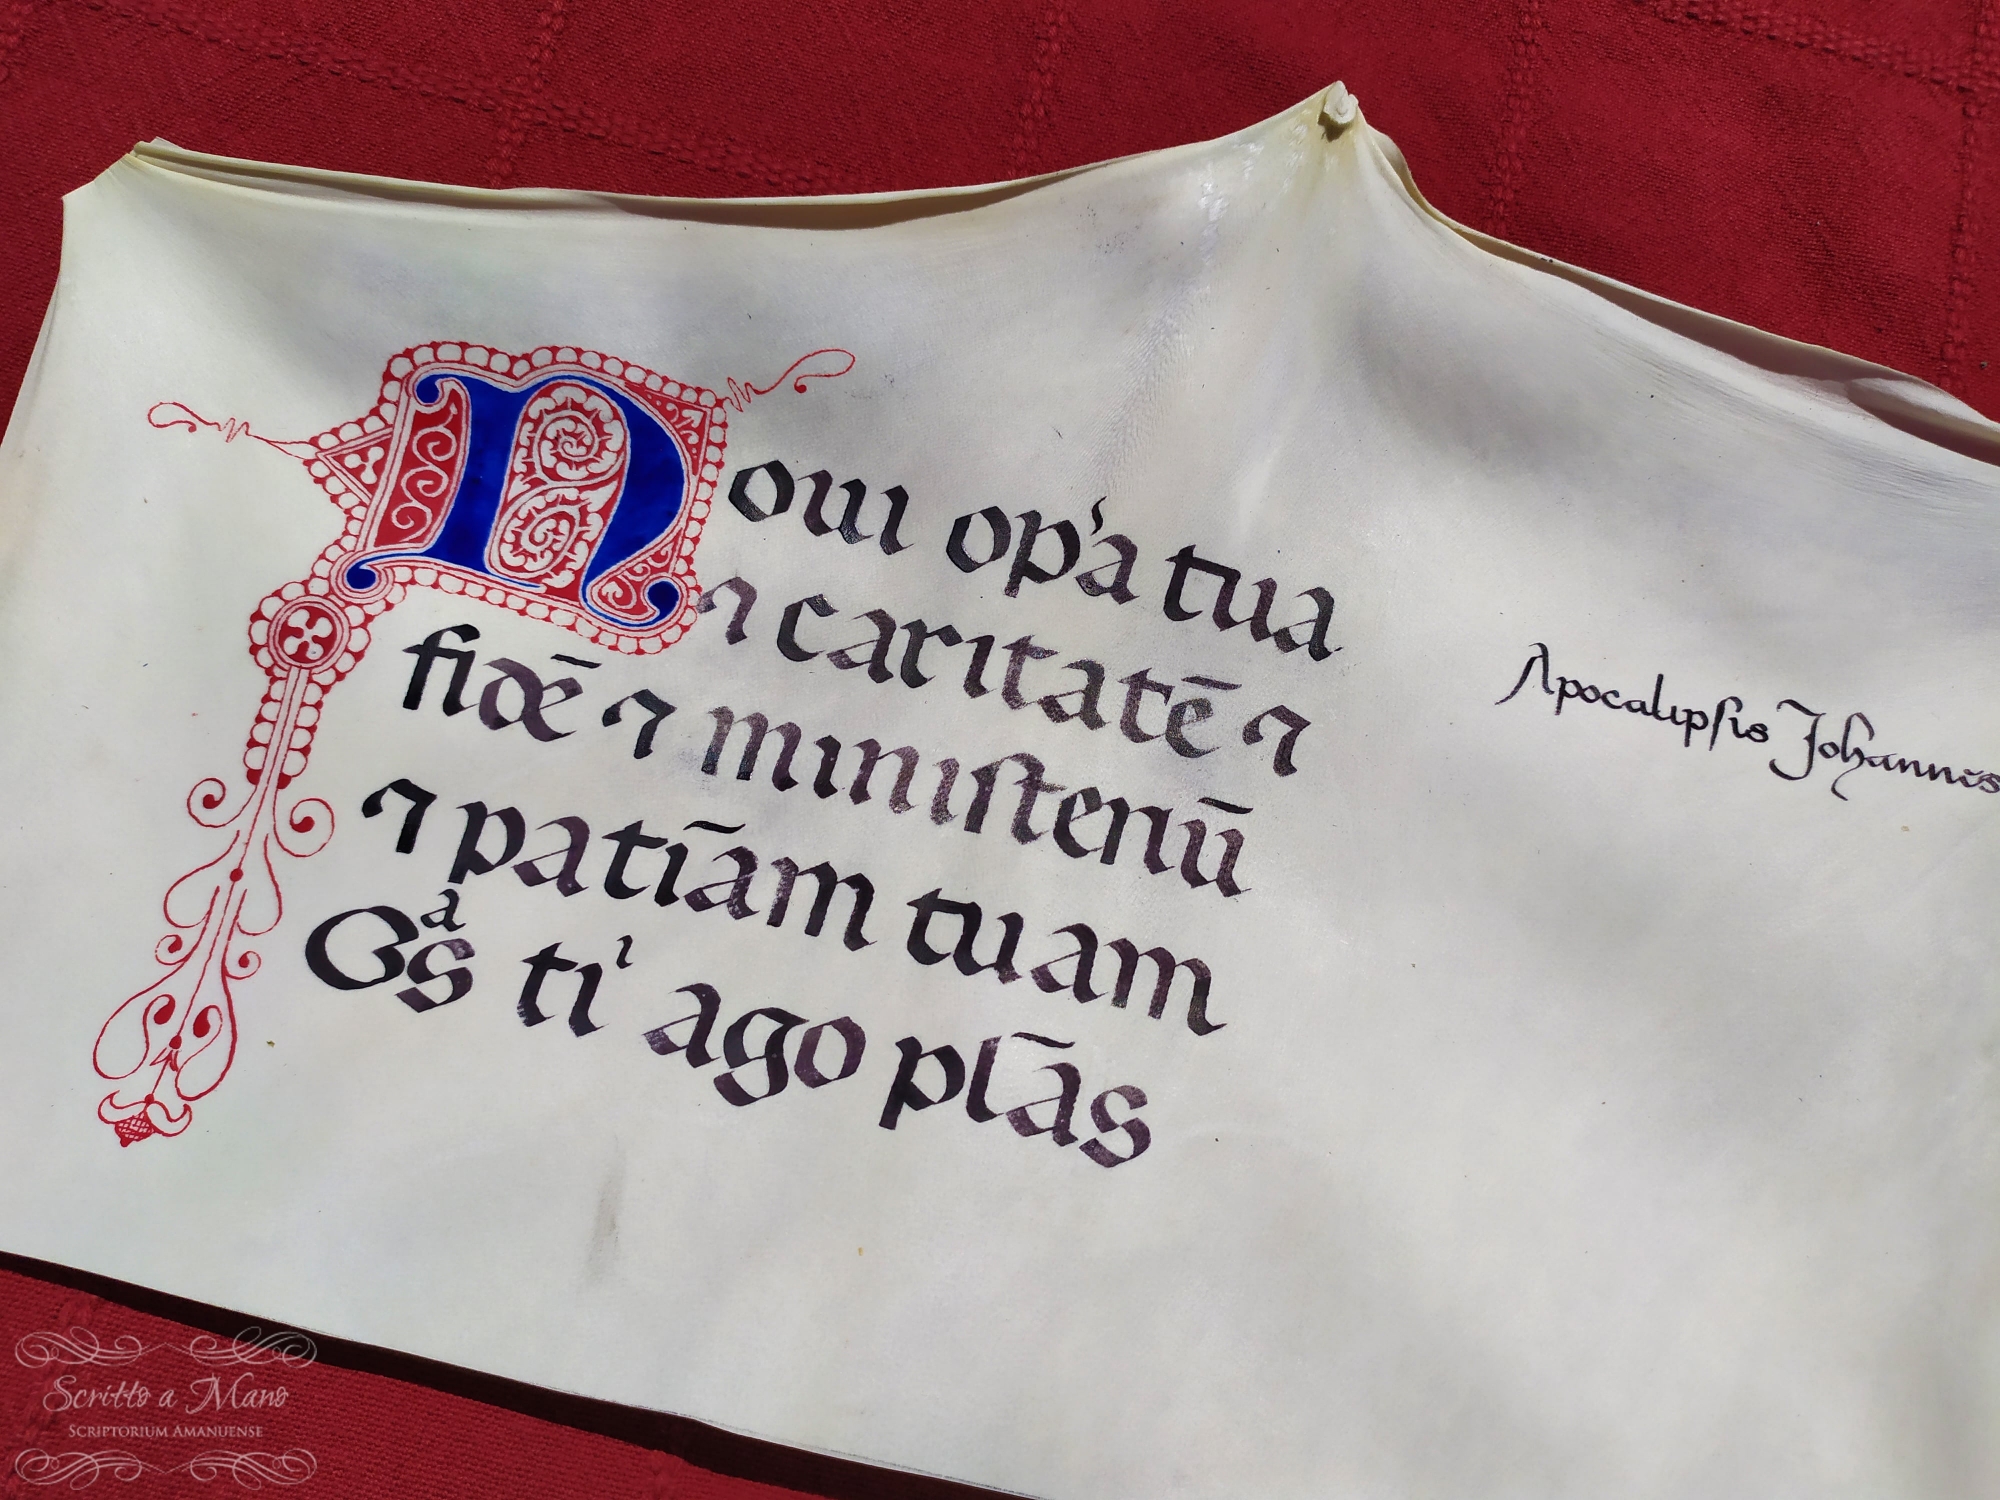 Noui op'a tua
⁊ caritatē ⁊
fidē ⁊ miniſteriū
⁊ patiāam tuam
Gᵃs tiⁱ ago plās
Apocalipſis Johannis
Scritto a Mano
SCRIPTORIUM AMANUENSE